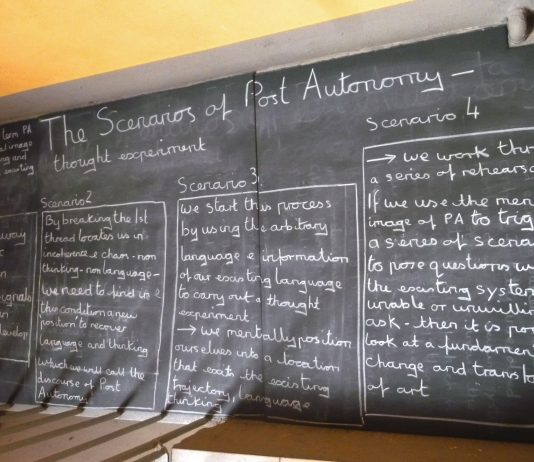 The Scenarios of Post Autonomy —
thought experiment
term PA
image
ng and
existing
way
n
signals
in
develop
Scenario 2
By breaking the 1st
thread locates us in
incoherence chaos - non
thinking - non language -
we need to find in
this condition a new
position to recover
language and thinking
which we will call the
discourse of Post
Autonomy
Scenario 3
we start this process
by using the arbitrary
language e information
of our existing language
to carry out a thought
experiment
→ we mentally position
ourselves into a location
that exits the existing
trajectory, language
thinking,
Scenario 4
→ we work thr
a series of rehears
If we use the men
image of PA to trig
a series of scena
to pose questions w
the existing system
unable or unwilli
ask - then it is po
look at a fundamen
change and transfo
of art